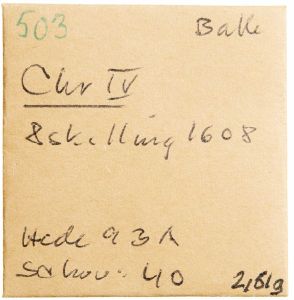 503 Balle
Chr IV
8 skilling 1608
Hede 93A
Schou: 40 2,61g